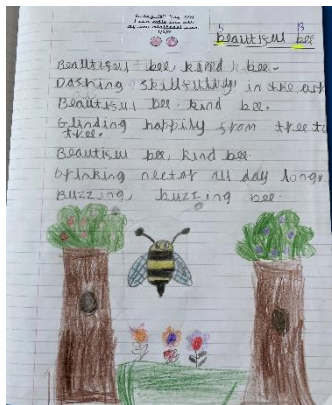 beautiful bee
Beautiful bee, kind bee.
Dashing skillfully in the
Beautiful bee kind bee.
Gliding happily from tree to
tree.
Beautiful bee, kind bee
Drinking nectar all day long.
Buzzing, buzzing bee.